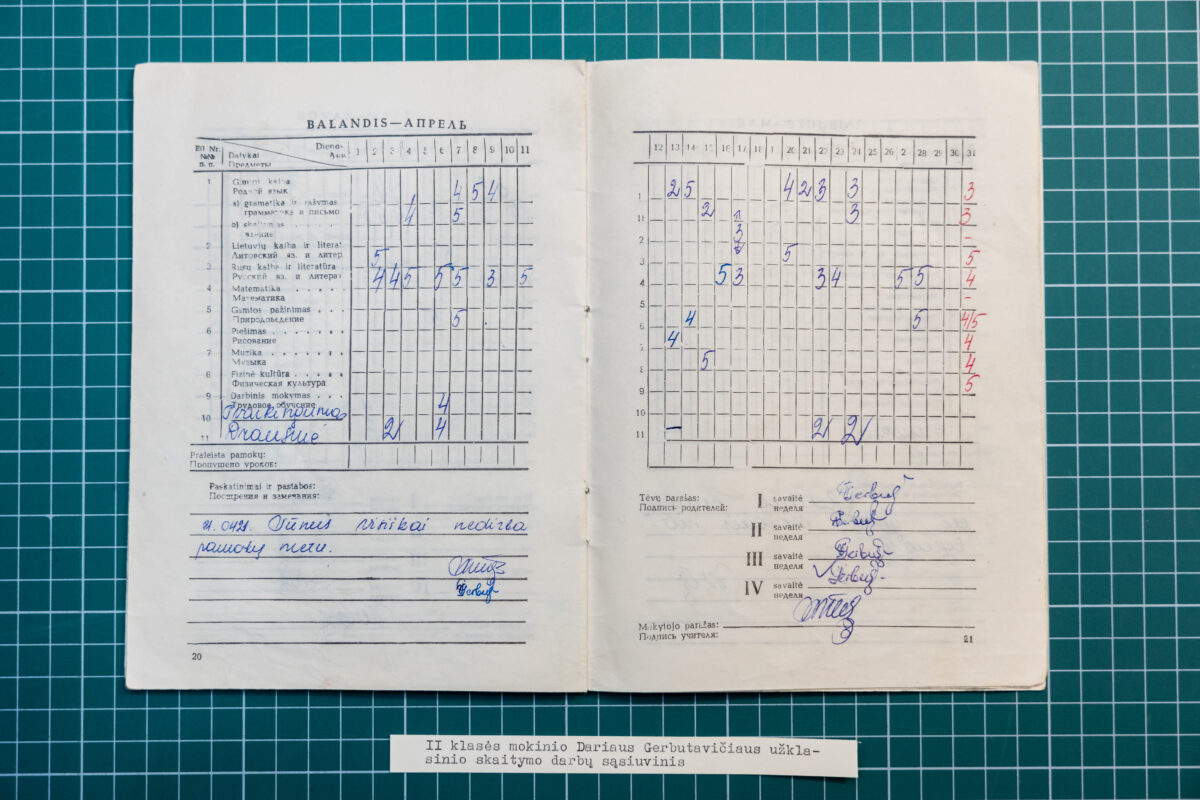 BALANDIS—АПРЕЛЬ
Eil Nr.
№№
п. п.
Dalykai
Предметы
Dieno-
1 2 3 4 5 6 7 8 9 10 11
1 Gimtoji kalba
Родной язык 4 5 4
a) gramatika ir rašymas
грамматика и письмо 4 5
b) skaitymas . . . .
чтение
2 Lietuvių kalba ir literat
Литовский яз. и литер 5
3 Rusų kalba ir literatūra .
Русский яз. и литерат 4 4 5 5 5 3 5
4 Matematika . . . . .
Математика
5 Gamtos pažinimas . . .
Природоведение 5
6 Piešimas . . . . . . .
Рисование
7 Muzika . . . . . . .
Музыка
8 Fizinė kultūra . . . . .
Физическая культура
9 Darbinis mokymas . . .
Трудовое обучение 4
10
11 Drausmė 2 4
Praleista pamokų:
Пропущено уроков:
Paskatinimai ir pastabos:
Поощрения и замечания:
pamokų metu.
20
12 13 14 15 16 17 18 1 20 21 22 23 24 25 26 2 28 29 30 31
1 2 5 4 2 3 3 3
11 2 1 3 3
2 3 -
3 2 5 5
4 5 3 3 4 5 5 4
5 -
6 4 5 4/5
7 4 4
8 5 4
9 5
10
11 – 2 2
Tėvų parašas:
Подпись родителей:
I savaitė
неделя
II savaitė
неделя
III savaitė
неделя
IV savaitė
неделя
Mokytojo parašas:
Подпись учителя:
21
II klasės mokinio Dariaus Gerbutavičiaus užkla-
sinio skaitymo darbų sąsiuvinis